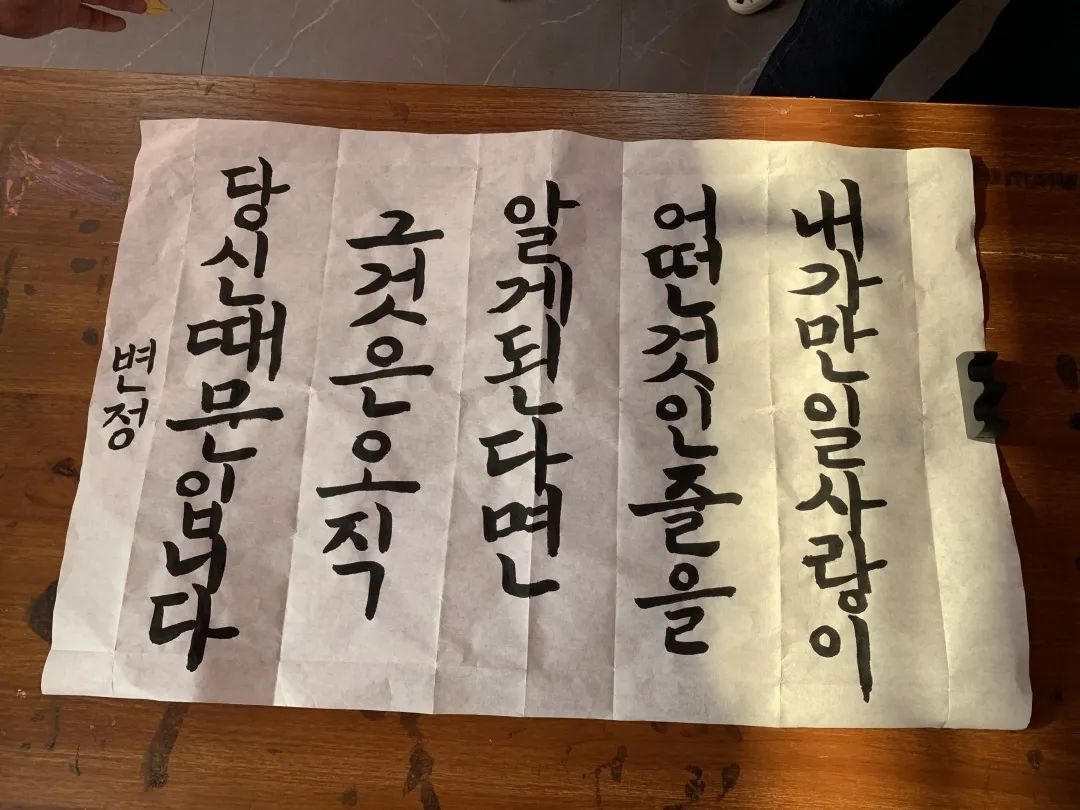 내가만일사랑이
어떤것인줄을
알게된다면
그것은오직
당신때문입니다
변정